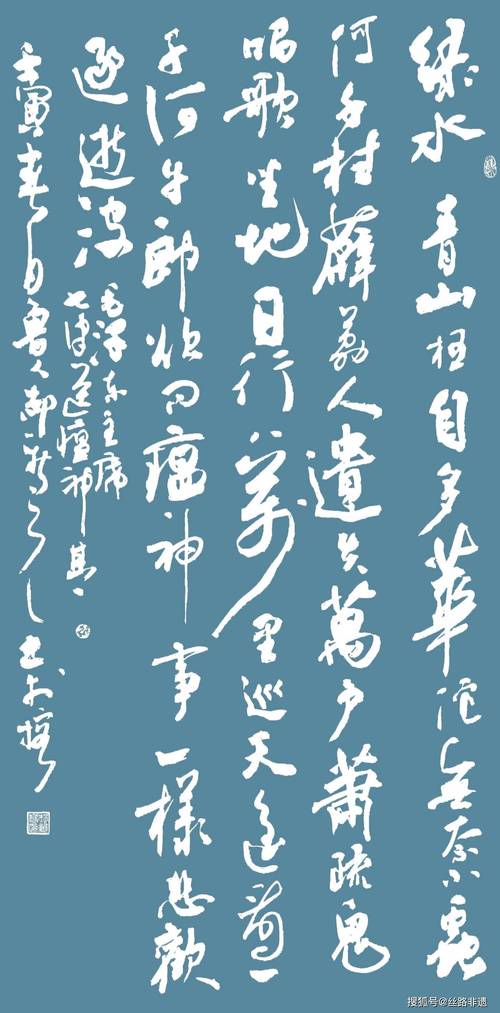 绿水青山枉自多華佗無奈小蟲
何千村薜荔人遺矢萬户蕭疏鬼
唱歌坐地日行八萬里巡天遥看一
千河牛郎欲问瘟神事一樣悲歡
逐逝波
毛泽东主席
七律送瘟神其一
壬寅春月魯人
搜狐号@丝路非遗